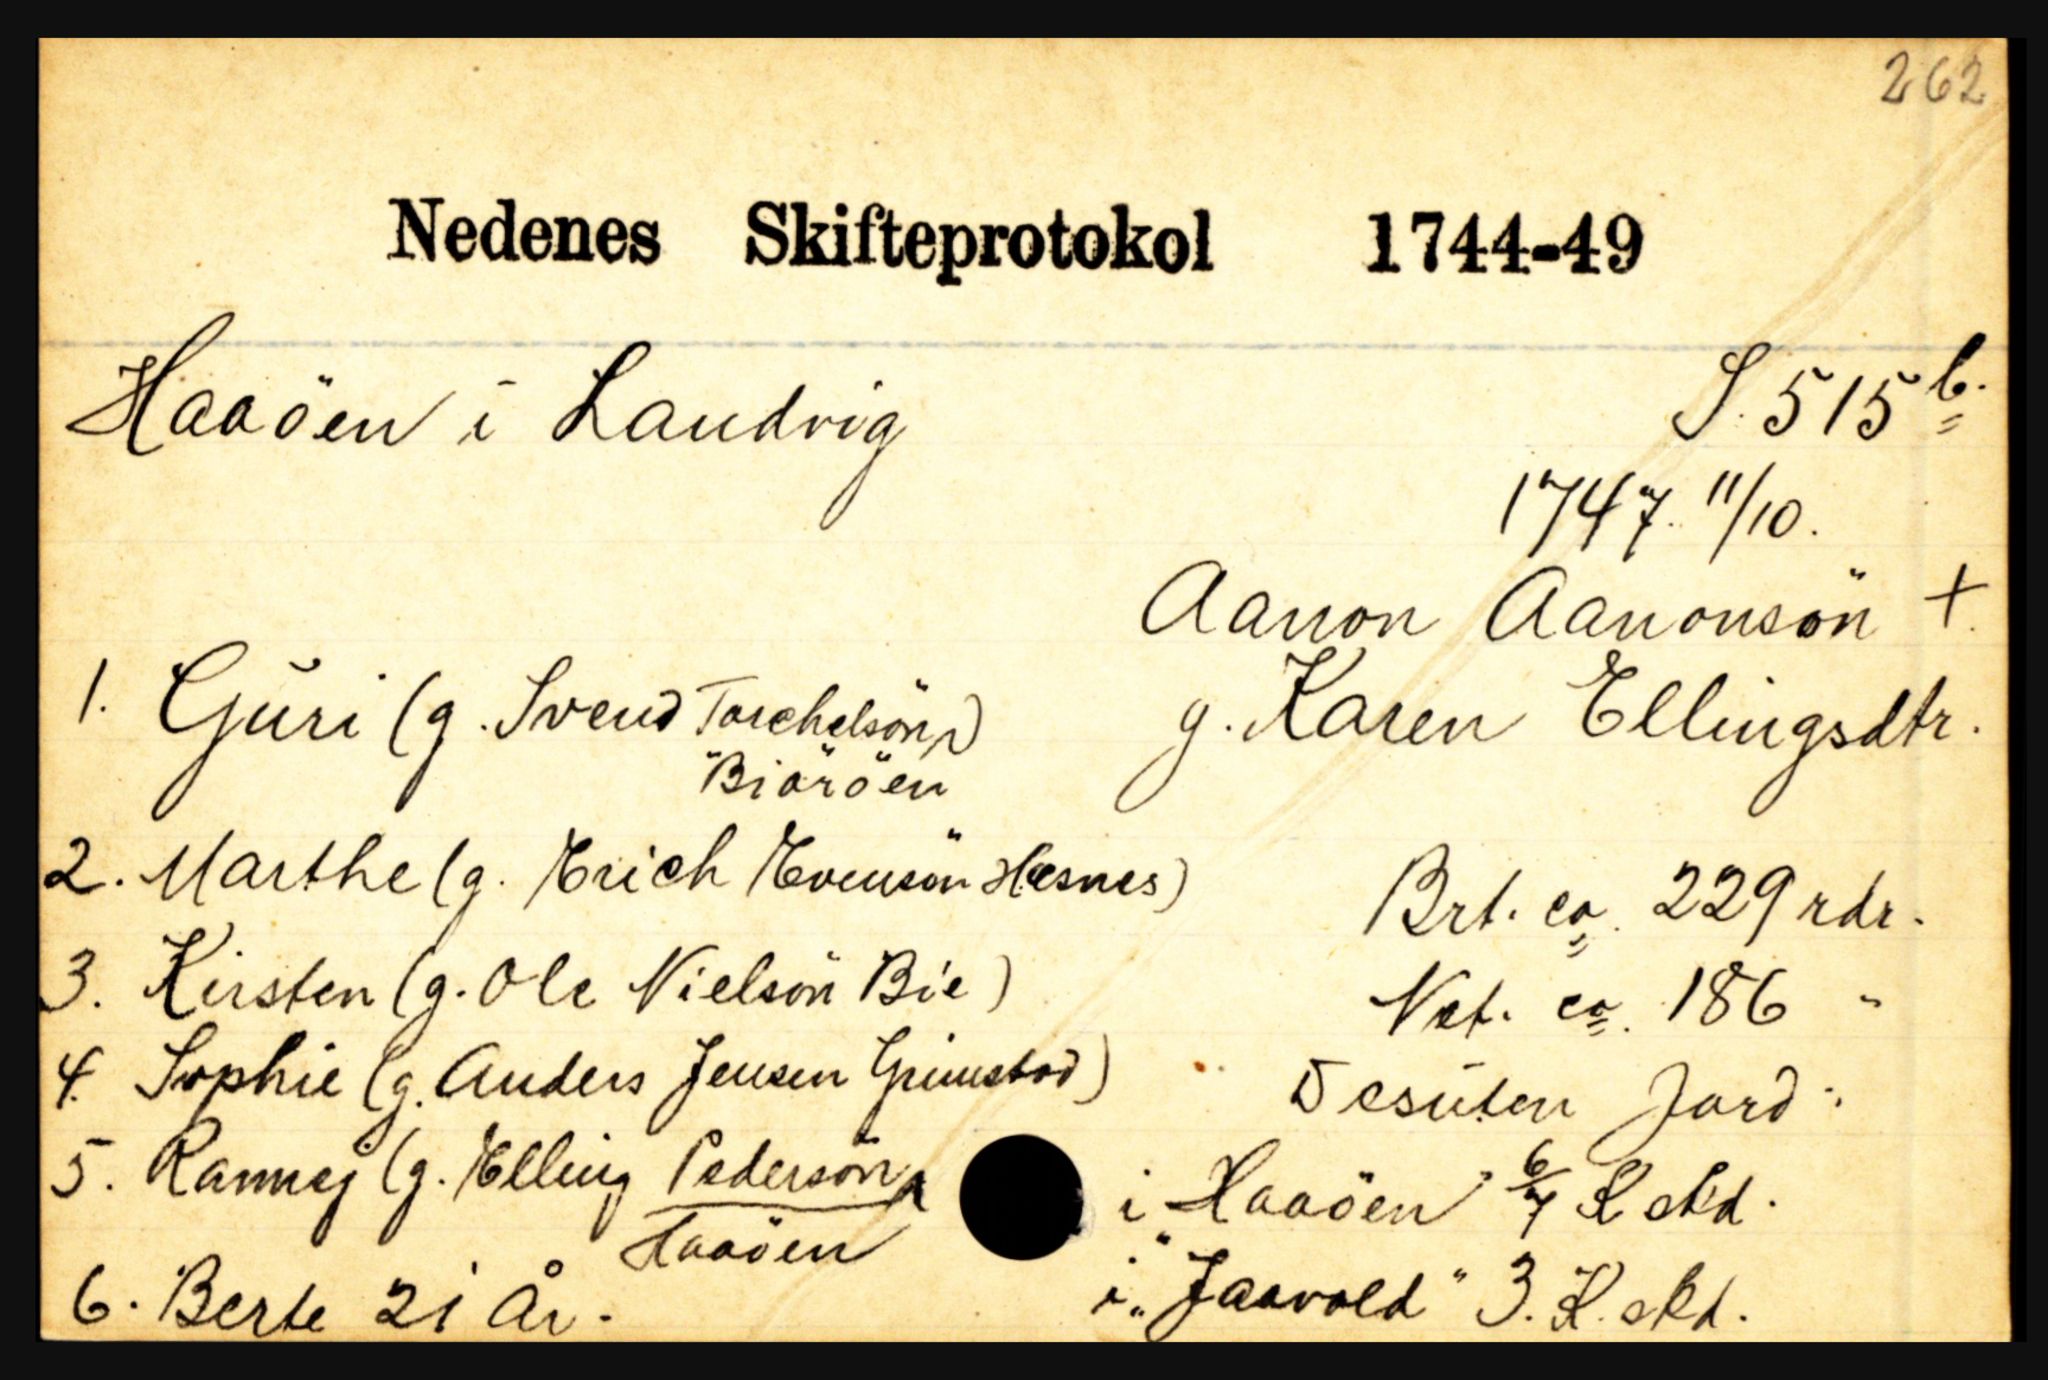 262
Nedenes Skifteprotokol 1744-49
Haaöen i Landvig S. 515 b.
1747. 11/10.
Aanon Aanonsön +.
g. Karen Ellingsdtr.
1. Guri (g. Svend Torchelsön)
Biäröen
2. Marthe (g. Erich Evensön Hesnes)
3. Kirsten (g. Ole Nielsön Bie)
4. Sophie (g. Anders Jensen Grimstad)
5. Rannej (g. Elling Pedersön
Haaöen
6. Berte 21 År.
Brt. ca. 229 rdr.
Net. ca. 186 "
Desuten Jord:
i Haaöen" 6/7 K skd.
i „Jaavold" 3. K. skd.